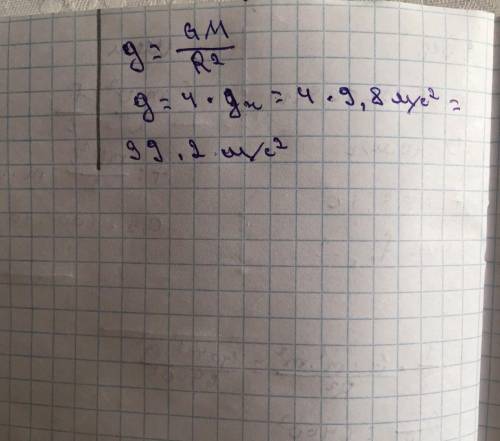 g = GM / R²
g = 4 · gₙ = 4 · 9,8 м/с² =
39.2 м/с²